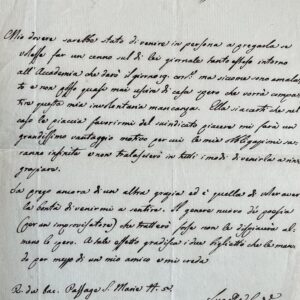 Mio dovere sarebbe stato di venire in persona a pregarla se
volesse far un cenno sul di lei giornale tanto esteso intorno
all'Accademia che darò il giorno 19 cor.te ma siccome sono amalato
e non posso quasi mai uscire di casa spero che vorrà compa-
tire questa mia involontaria mancanza. Ella si accerti che nel
caso le piaccia favorirmi del suindicato piacere mi farà un
grandissimo vantaggio motivo per cui le mie obbligazioni sa-
ranno infinite e non tralascierò in tutti i modi di venirla a rin-
graziare.
La prego ancora di un altra grazia ed è quella di
la bontà di venirmi a sentire. Il genere nuovo di poesia
(per un improvisatore) che tratterò forse non le dispiacerà al-
meno lo spero. A tale effetto gradisca i due biglietti che le man-
do per mezzo di un mio amico e mi creda
R. du Bac. Passage S. Marie N.